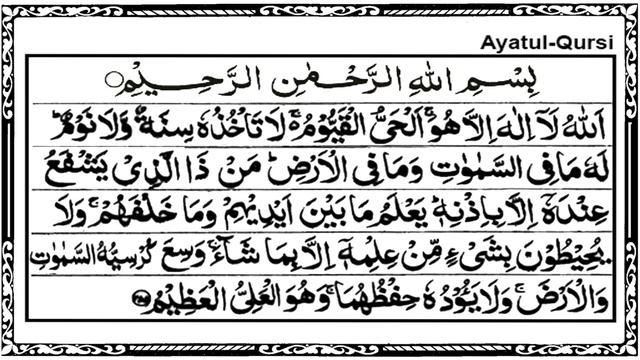 Ayatul-Qursi
بِسْمِ اللهِ الرَّحْمٰنِ الرَّحِيْمِ
اَللهُ لَآ اِلٰهَ اِلَّا هُوَۚ اَلْحَىُّ الْقَيُّوْمُ ۚ لَا تَاْخُذُهٗ سِنَةٌ وَّلَا نَوْمٌ ؕ
لَهٗ مَا فِى السَّمٰوٰتِ وَمَا فِى الْاَرْضِ ؕ مَنْ ذَا الَّذِىْ يَشْفَعُ
عِنْدَهٗٓ اِلَّا بِاِذْنِهٖ ؕ يَعْلَمُ مَا بَيْنَ اَيْدِيْهِمْ وَمَا خَلْفَهُمْ ۚ وَلَا
يُحِيْطُوْنَ بِشَىْءٍ مِّنْ عِلْمِهٖٓ اِلَّا بِمَا شَآءَ ۚ وَسِعَ كُرْسِيُّهُ السَّمٰوٰتِ
وَالْاَرْضَ ۚ وَلَا يَئُوْدُهٗ حِفْظُهُمَا ۚ وَهُوَ الْعَلِىُّ الْعَظِيْمُ